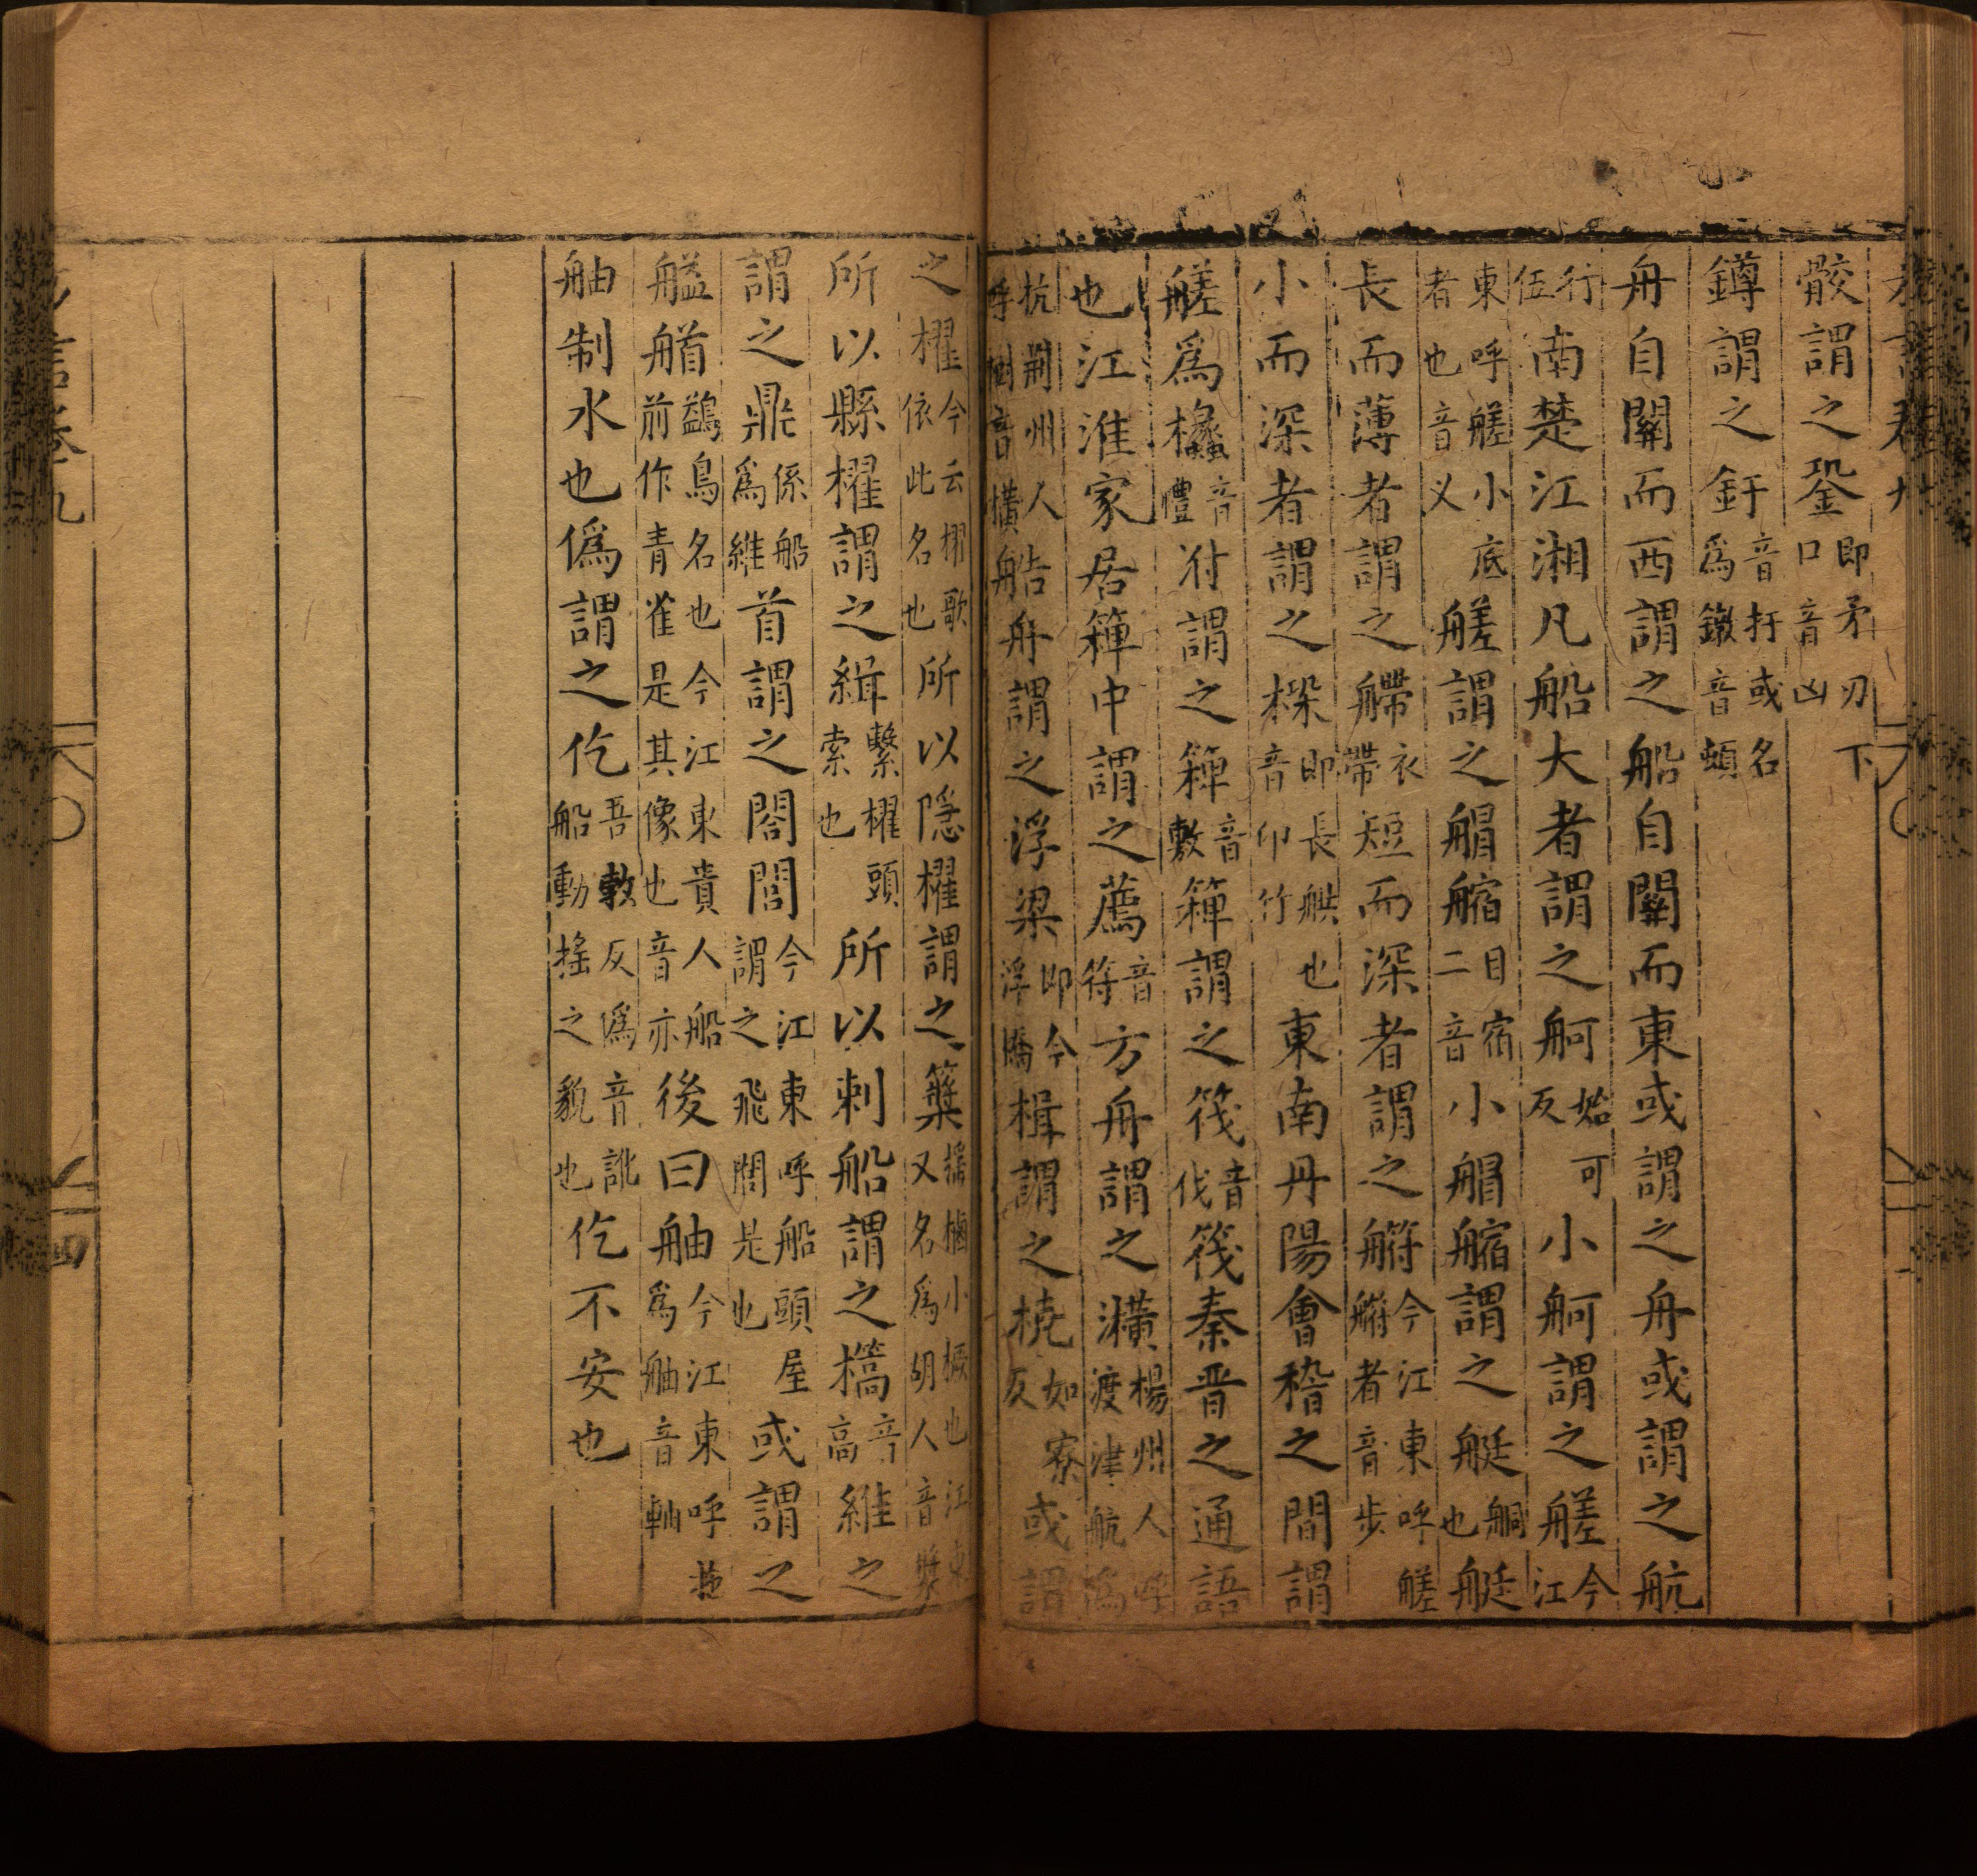 骹謂之銎即矛刃下口音凶
鐏謂之釬音扞或名爲鐓音頓
舟自關而西謂之船自關而東或謂之舟或謂之航
行伍南楚江湘凡船大者謂之舸始可反小舸謂之艖今江
東呼艖小底者也音叉艖謂之艒䑿目宿二音小艒䑿謂之艇艒也艇
長而薄者謂之艜衣帶短而深者謂之䑧今江東呼艖䑧者音步
小而深者謂之㮂即長舼也音卭竹東南丹陽會稽之間謂
艖爲欚音禮泭謂之䉬音敷䉬謂之筏音伐筏秦晋之通語
也江淮家居䉬中謂之薦音符方舟謂之㶇楊州人呼渡津航爲
杭荆州人呼樹音橫艁舟謂之浮梁即今浮橋楫謂之橈如寮反或謂
之櫂今云櫂歌依此名也所以隱櫂謂之䉃搖樐小橛也江東又名爲胡人音槳
所以縣櫂謂之緝繫櫂頭索也所以刺船謂之檇音高維之
謂之鼎係船爲維首謂之閤閭今江東呼船頭屋謂之飛閭是也或謂之
艗艏鷁鳥名也今江東貴人船前作青雀是其像也音亦後曰舳今江東呼拖爲舳音軸
舳制水也僞謂之仡吾敎反僞音訛船動搖之貌也仡不安也